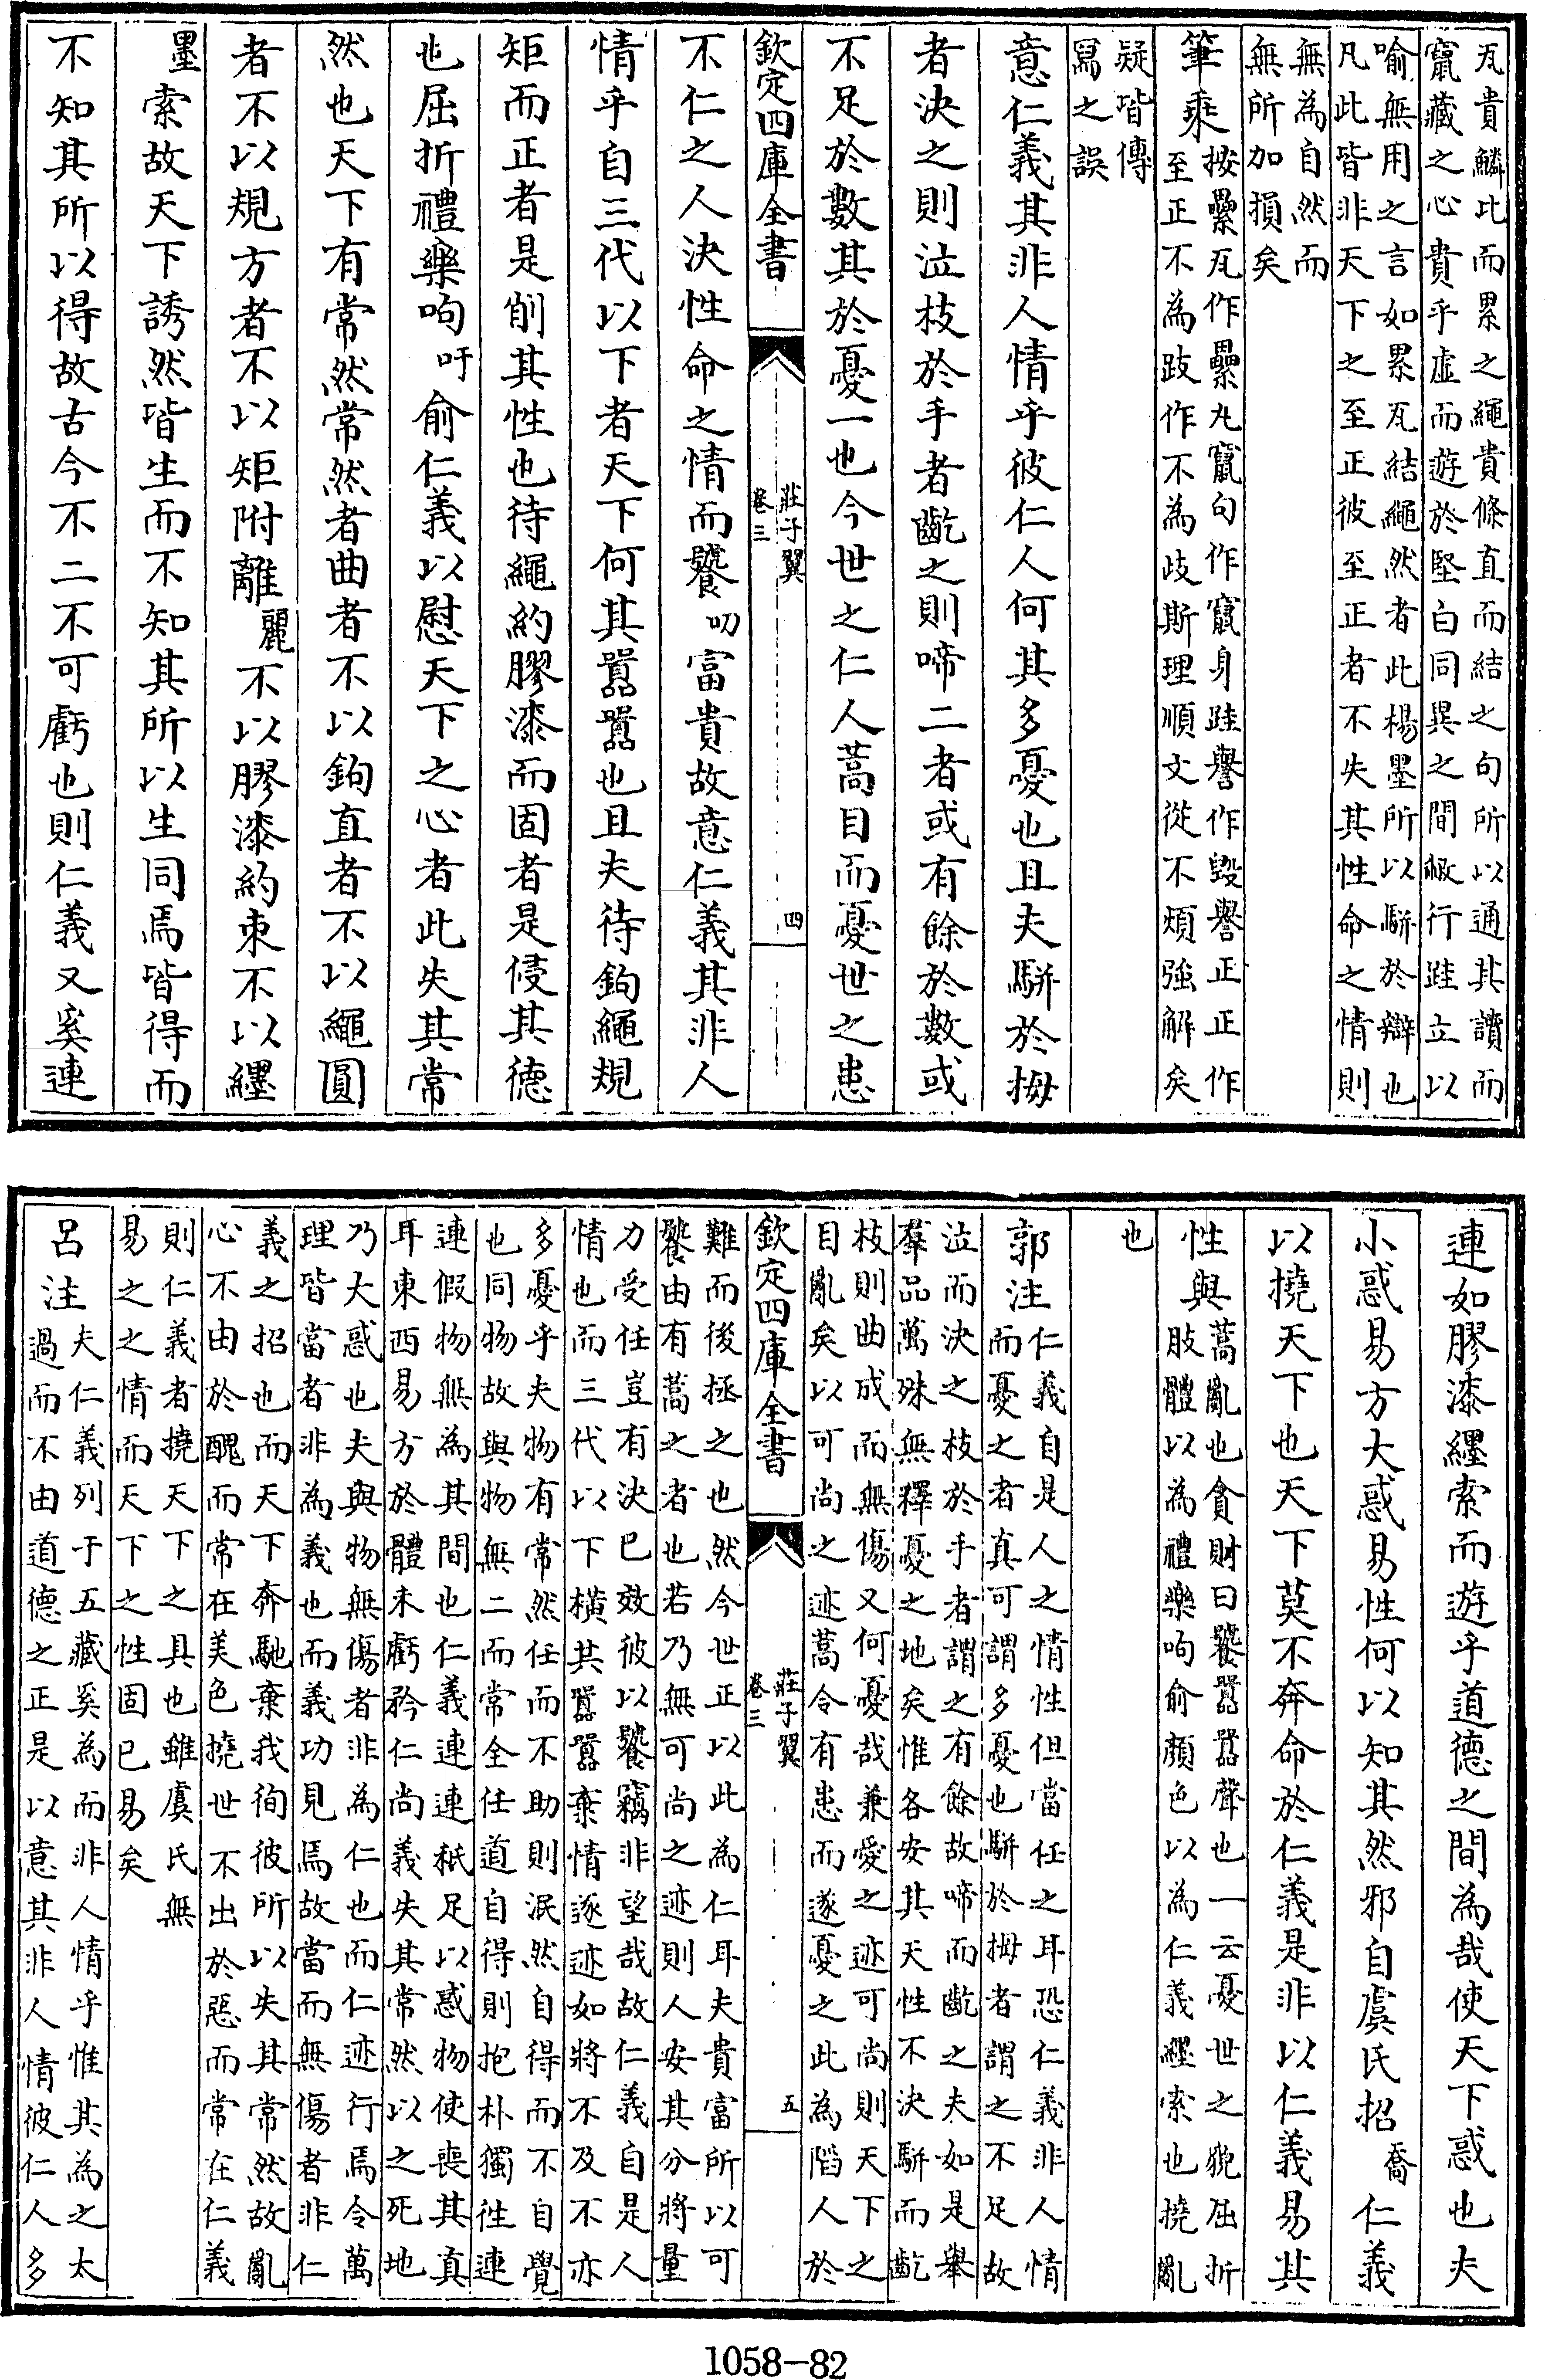 瓦貴鱗比而累之繩貴條直而結之句所以通其讀而
竄藏之心貴乎虛而遊於堅白同異之間㪚行跬立以
喻無用之言如累瓦結繩然者此楊墨所以駢於辯也
凡此皆非天下之至正彼至正者不失其性命之情則
無為自然而
無所加損矣
筆乘按纍瓦作纍丸竄句作竄身跬譽作毀譽正正作
至正不為跂作不為歧斯理順文從不煩強解矣
疑皆傳
寫之誤
意仁義其非人情乎彼仁人何其多憂也且夫駢於拇
者決之則泣枝於手者齕之則啼二者或有餘於數或
不足於數其於憂一也今世之仁人蒿目而憂世之患
欽定四庫全書
莊子翼
卷三
四
不仁之人決性命之情而饕叨富貴故意仁義其非人
情乎自三代以下者天下何其囂囂也且夫待鉤繩規
矩而正者是削其性也待繩約膠漆而固者是侵其德
也屈折禮樂呴吁俞仁義以慰天下之心者此失其常
然也天下有常然常然者曲者不以鉤直者不以繩圓
者不以規方者不以矩附離麗不以膠漆約束不以纆
墨索故天下誘然皆生而不知其所以生同焉皆得而
不知其所以得故古今不二不可虧也則仁義又奚連
連如膠漆纆索而遊乎道德之間為哉使天下惑也夫
小惑易方大惑易性何以知其然邪自虞氏招喬仁義
以撓天下也天下莫不奔命於仁義是非以仁義易其
性與蒿亂也貪財曰饕囂囂聲也一云憂世之貌屈折
肢體以為禮樂呴俞顏色以為仁義纆索也撓亂
也
郭注仁義自是人之情性但當任之耳恐仁義非人情
而憂之者真可謂多憂也駢於拇者謂之不足故
泣而決之枝於手者謂之有餘故啼而齕之夫如是舉
羣品萬殊無釋憂之地矣惟各安其天性不決駢而齕
枝則曲成而無傷又何憂哉兼愛之迹可尚則天下之
目亂矣以可尚之迹蒿令有患而遂憂之此為陷人於
欽定四庫全書
莊子翼
卷三
五
難而後拯之也然今世正以此為仁耳夫貴富所以可
饕由有蒿之者也若乃無可尚之迹則人安其分將量
力受任豈有決已效彼以饕竊非望哉故仁義自是人
情也而三代以下橫其囂囂棄情逐迹如將不及不亦
多憂乎夫物有常然任而不助則泯然自得而不自覺
也同物故與物無二而常全任道自得則抱朴獨徃連
連假物無為其間也仁義連連秖足以惑物使喪其真
耳東西易方於體未虧矜仁尚義失其常然以之死地
乃大惑也夫與物無傷者非為仁也而仁迹行焉令萬
理皆當者非為義也而義功見焉故當而無傷者非仁
義之招也而天下奔馳棄我徇彼所以失其常然故亂
心不由於醜而常在美色撓世不出於惡而常在仁義
則仁義者撓天下之具也雖虞氏無
易之之情而天下之性固已易矣
呂注夫仁義列于五藏奚為而非人情乎惟其為之太
過而不由道德之正是以意其非人情彼仁人多
1058-82